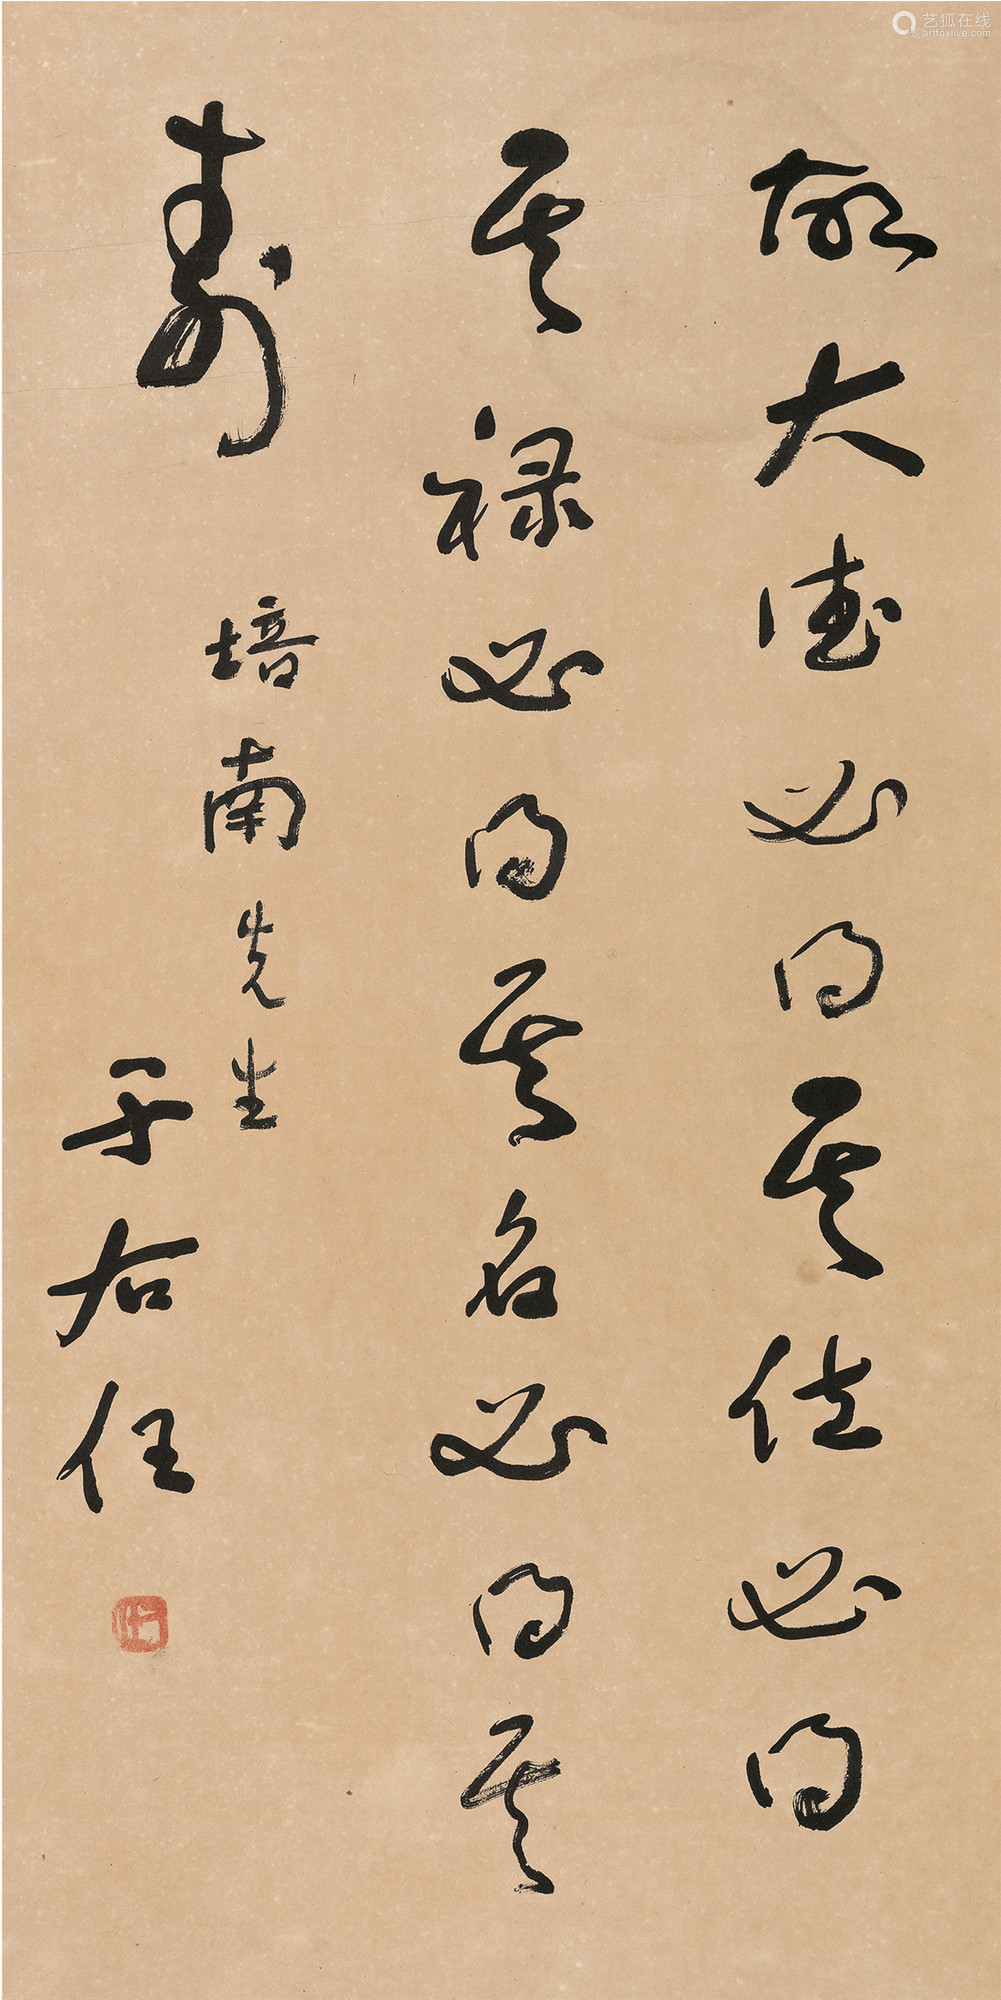 故大德必得其位必得
其禄必得其名必得其
寿
培南先生
于右任
艺狐在线
artfoxlive.com